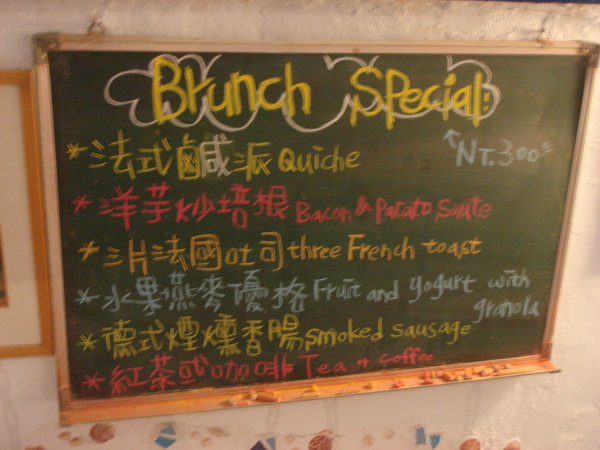 Brunch Special:
NT.300
* 法式鹹派 Quiche
* 洋芋炒培根 Bacon & Patato Saute
* 三片法國吐司 three French toast
* 水果燕麥優格 Fruit and yogurt with granola
* 德式煙燻香腸 smoked sausage
* 紅茶或咖啡 Tea or coffee